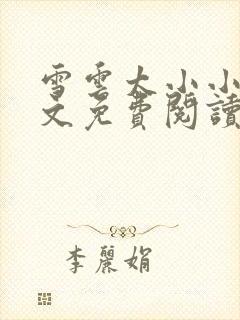 雪雲大小小
文免費閱讀
李麗娟